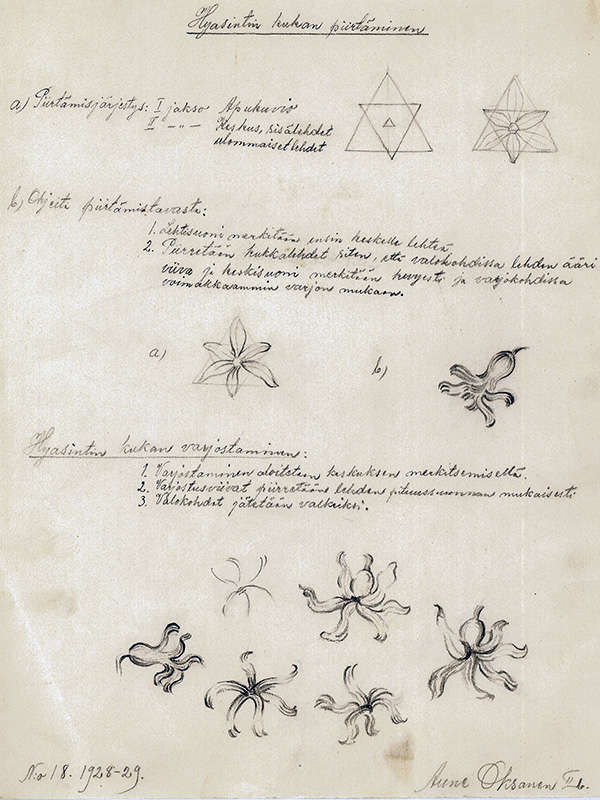 Hyasintin kukan piirtäminen
a) Piirtämisjärjestys: I jakso Apukuvio
II -„- Keskus, sisälehdet
ulommaiset lehdet
b) Ohjeita piirtämistavasta:
1. Lehtisuoni merkitään ensin keskelle lehteä
2. Piirretään kukkalehdet siten, että valokohdissa lehden ääri
viiva ja keskisuoni merkitään hevyesti ja varjokohdissa
voimakkaammin varjon mukaan.
a)
b)
Hyasintin kukan varjostaminen:
1. Varjostaminen aloitetaan keskuksen merkitsemisellä.
2. Varjostusviivat piirretään lehden pituussuunnan mukaisesti
3. Valokohdat jätetään valkeiksi.
N:o 18. 1928-29.
Aune Oksanen II b.